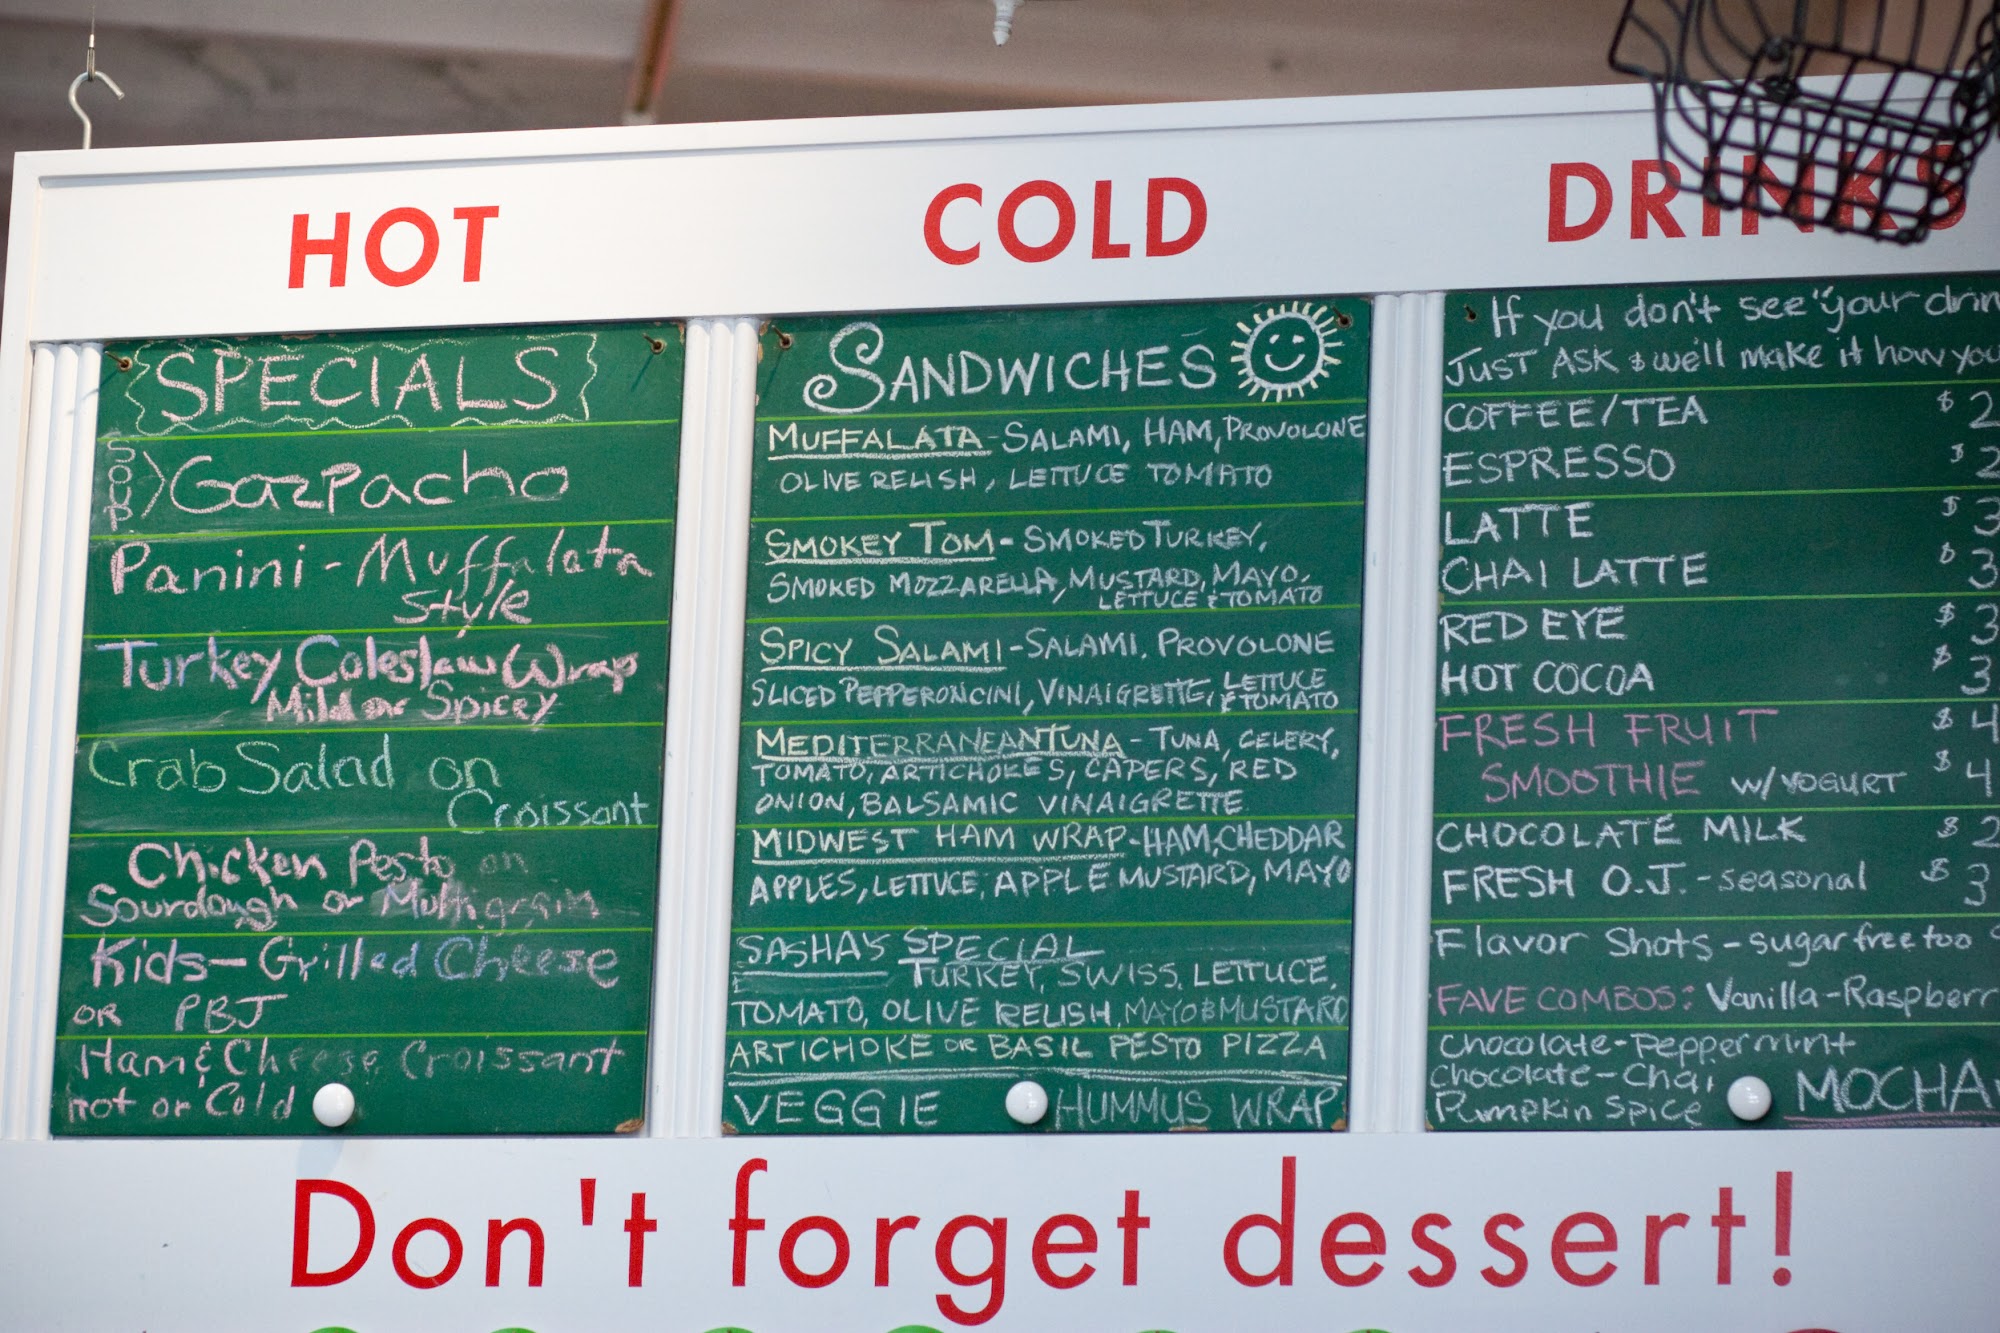 HOT
SPECIALS
SOUP > Gazpacho
Panini - Muffalata
Style
Turkey Coleslaw Wrap
Mild or Spicey
Crab Salad on
Croissant
Chicken Pesto on
Sourdough or Multigrain
Kids - Grilled Cheese
OR PBJ
Ham & Cheese Croissant
Hot or Cold
COLD
SANDWICHES
MUFFALATA - SALAMI, HAM, PROVOLONE
OLIVE RELISH, LETTUCE TOMATO
SMOKEY TOM - SMOKED TURKEY,
SMOKED MOZZARELLA, MUSTARD, MAYO,
LETTUCE & TOMATO
SPICY SALAMI - SALAMI, PROVOLONE
SLICED PEPPERONCINI, VINAIGRETTE, LETTUCE
& TOMATO
MEDITERRANEAN TUNA - TUNA, CELERY,
TOMATO, ARTICHOKES, CAPERS, RED
ONION, BALSAMIC VINAIGRETTE
MIDWEST HAM WRAP - HAM, CHEDDAR
APPLES, LETTUCE, APPLE MUSTARD, MAYO
SASHA'S SPECIAL
TURKEY, SWISS, LETTUCE,
TOMATO, OLIVE RELISH, MAYO & MUSTARD
ARTICHOKE OR BASIL PESTO PIZZA
VEGGIE HUMMUS WRAP
DRINKS
If you don't see "your drin
JUST ASK & we'll make it how you
COFFEE/TEA $2
ESPRESSO $2
LATTE $3
CHAI LATTE $3
RED EYE $3
HOT COCOA $3
FRESH FRUIT $4
SMOOTHIE W/YOGURT $4
CHOCOLATE MILK $2
FRESH O.J. - seasonal $3
Flavor Shots - sugar free too
FAVE COMBOS: Vanilla - Raspberr
Chocolate - Peppermint
Chocolate - Chai
Pumpkin Spice MOCHA
Don't forget dessert!